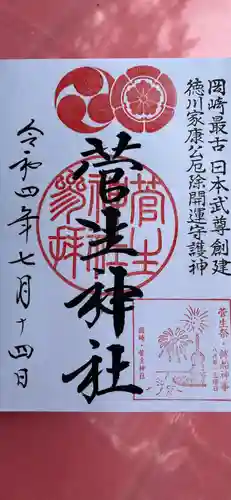 岡崎最古 日本武尊創建
徳川家康公厄除開運守護神
菅生神社
令和四年七月十四日
菅生神社参拝
菅生祭
岡崎・菅生神社